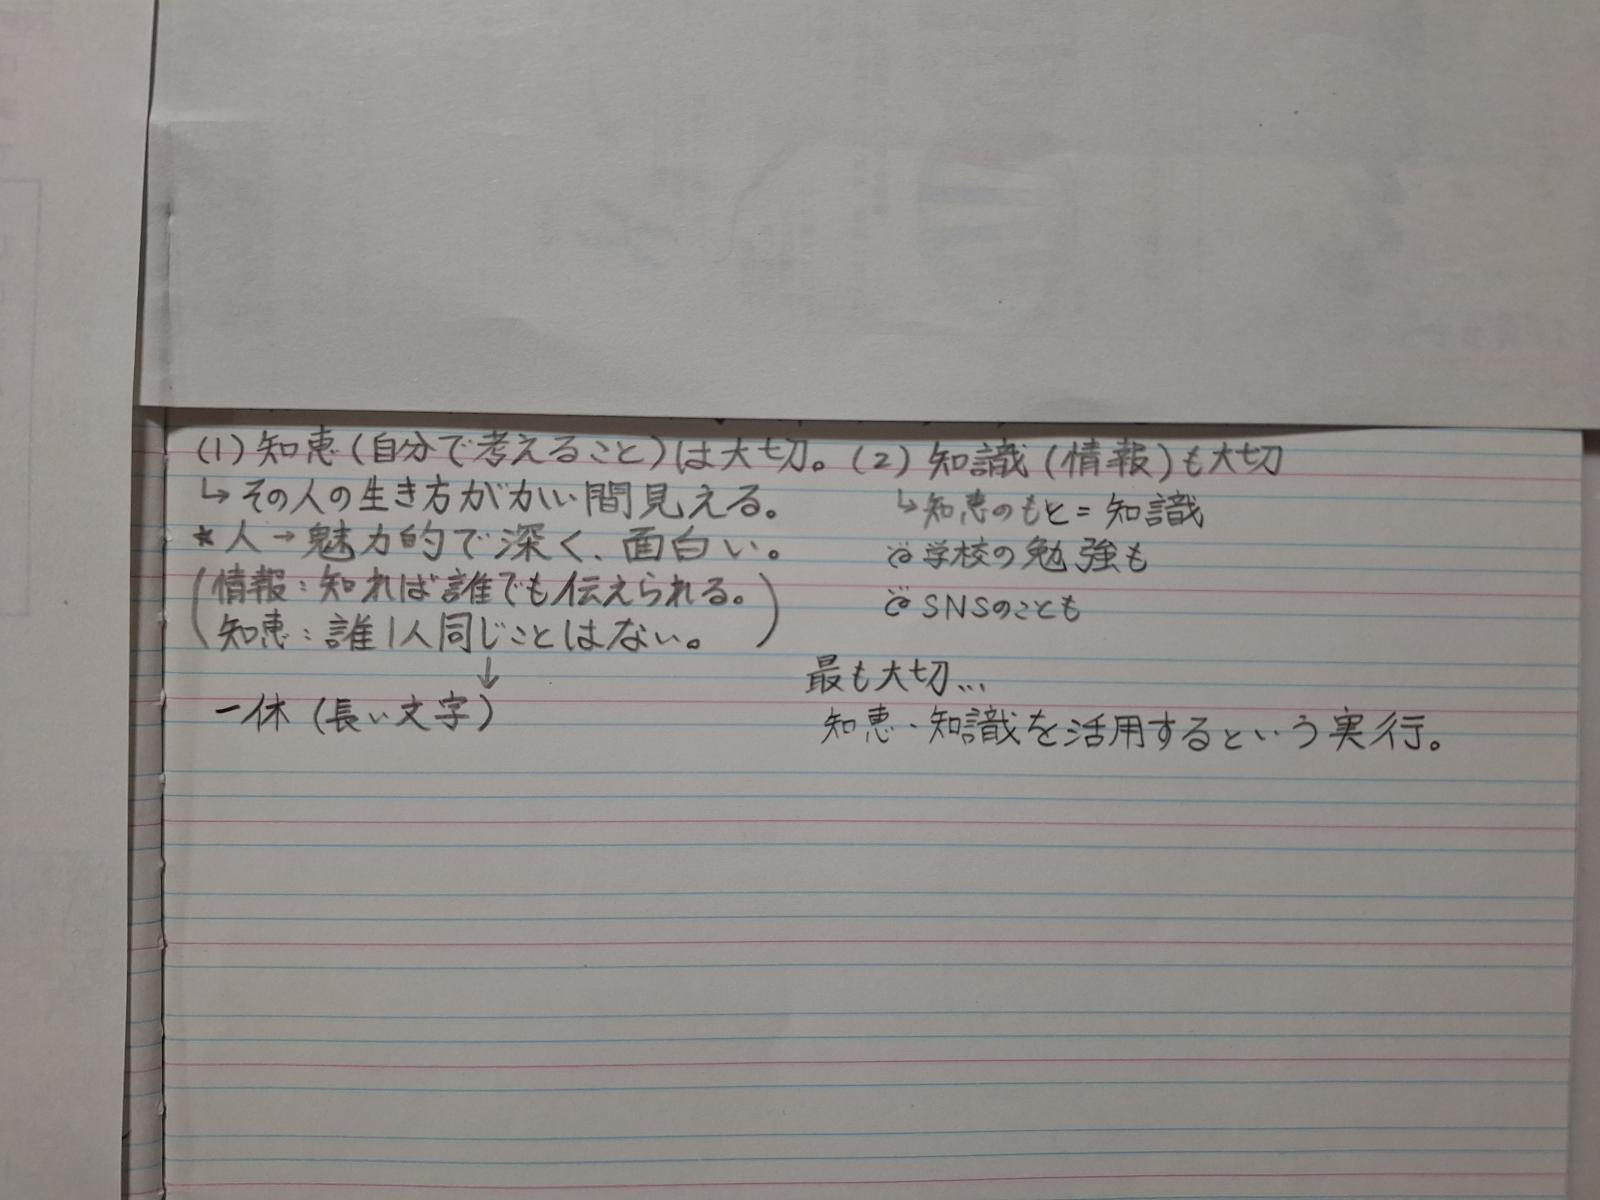 (1)知恵(自分で考えること)は大切。
↳その人の生き方がかい間見える。
*人→魅力的で深く、面白い。
(情報:知れば誰でも伝えられる。)
(知恵:誰1人同じことはない。)
↓
一休(長い文字)
(2)知識(情報)も大切
↳知恵のもと=知識
学校の勉強も
SNSのことも
最も大切…
知恵・知識を活用するという実行。